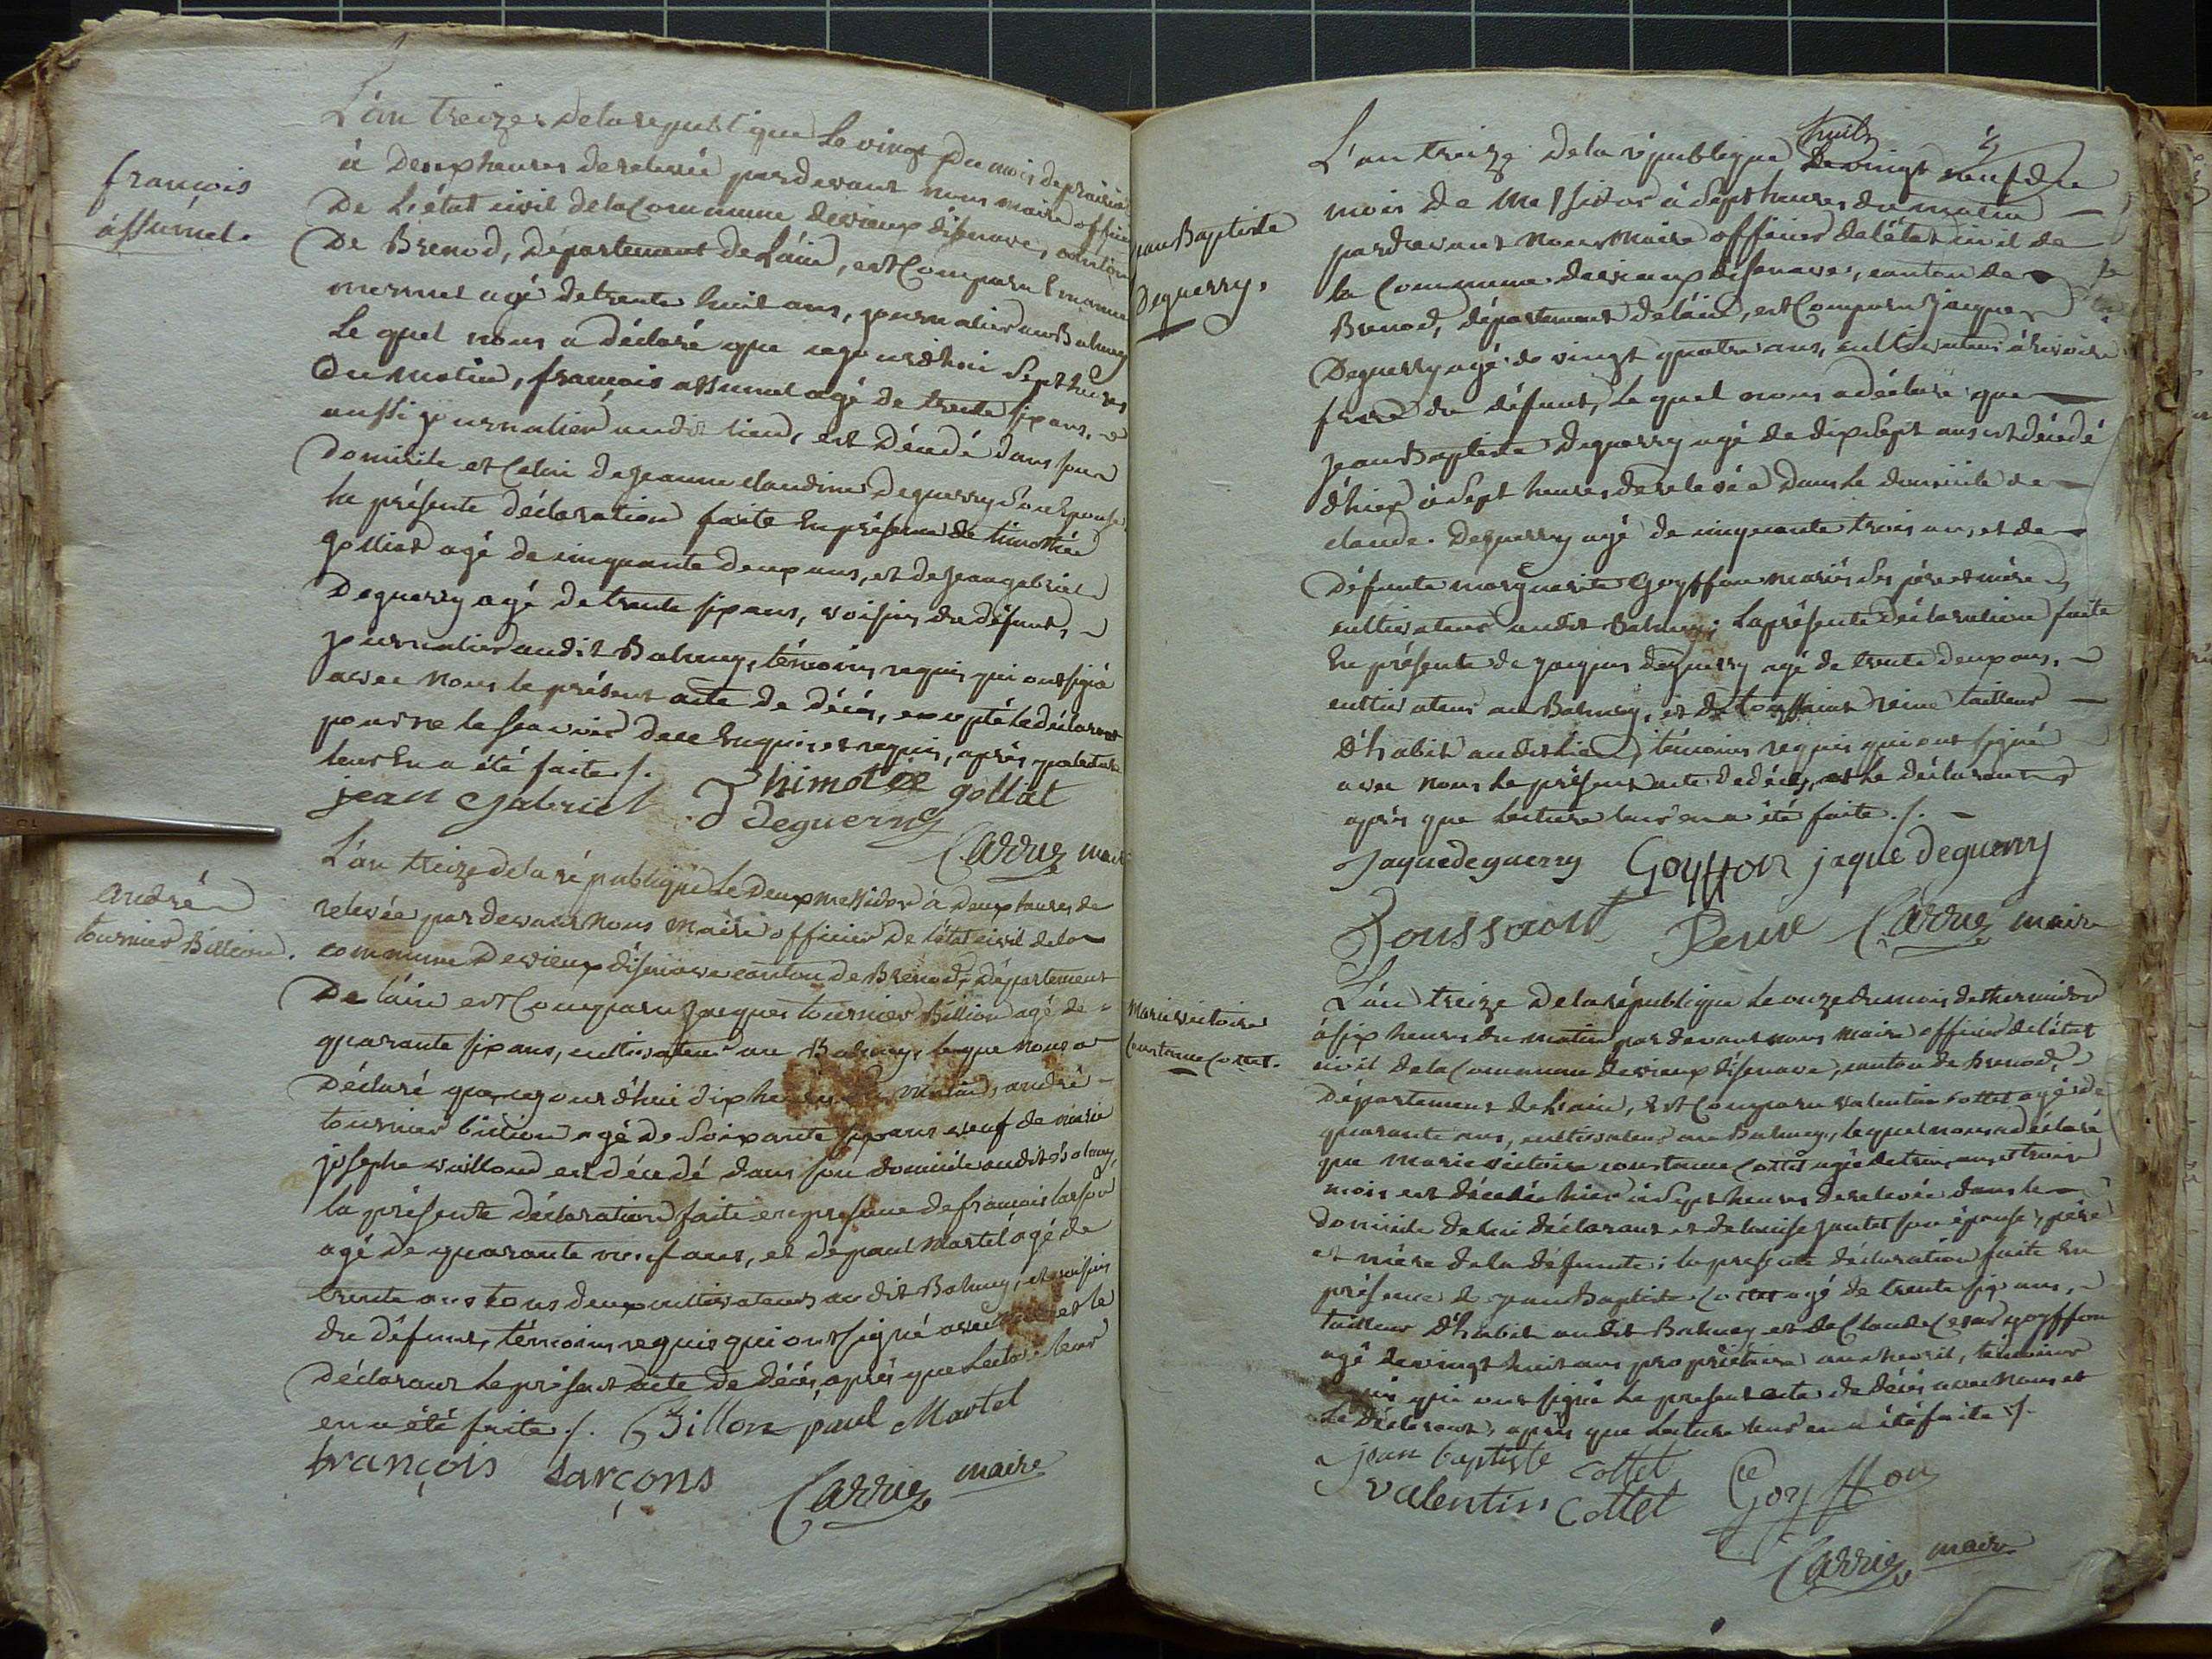 françois
assumel.
L'an treize dela republique Le vingt du mois de prairial
à Deux heures de relevée pardevant nous maire officier
De L'état civil dela Commune devieux disenave, canton
De Brenod, Département de Láin, est Comparu
mermet agé detrente huit ans, journalier au Balmey
Le quel nous a déclaré que cejourdhui Sept heures
Du matin, françois assumel agé de trente six ans,
aussi journalier audit lieu, est Décédé dans son
Domicile et Celui de jeanne claudine Deguerry Son Epouse,
la présente déclaration faite En présence de timothée
golliat agé de cinquante deux ans, et de jean gabriel
Deguerry agé de trente six ans, voisins du défunt,
journalier audit Balmey, témoins requis qui ont signé
avec nous le présent acte de décès, excepté le déclarant
pour ne le scavoir de ce Enquis et requis, après que lecture
leur En a été faite ./.
jean gabriel Thimotée gollat
Deguerry
Carrier maire
andré
tournier Billion.
L'an treize dela république Le Deux messidor à deux heures de
relevée pardevant nous maire officier De l'état civil dela
commune devieux disenave canton de Brenod, Département
De láin est Comparu jacques tournier Billion agé de
quarante six ans, cultivateur au Balmey, lequel nous a
Déclaré que cejourdhui dix heures du matin, andré
tournier billion agé de Soixante six ans veuf de marie
josephe vuilloud est décédé dans son domicile audit Balmey,
la présente déclaration faite en presence de francois larson
agé de quarante neuf ans, et de paul martel agé de
trente ans tous deux cultivateurs audit Balmey, et voisins
du défunt, témoins requis qui ont signé avec nous et le
Déclarant le présent acte de décès, après que Lecture leur
en a été faite ./. Billion paul Martel
françois Larçons
Carrier maire
jean Baptiste
Deguerry,
L'an treize dela république Le vingt huit neuf du
mois de Messidor à Sept heures du matin
pardevant nous Maire officier de l'état civil de
la Commune devieux disenave, canton de
Brenod, département de láin, est Comparu jacques
Deguerry agé de vingt quatre ans, cultivateur
frere du défunt, Le quel nous a déclaré que
jean Baptiste Deguerry agé de dix Sept ans est décédé
d'hier à Sept heures de relevée Dans Le domicile de
claude Deguerry agé de cinquante trois ans, et de
Défunte marguerite Goyffon mariés Ses père et mère,
cultivateur audit Balmey, La présente déclaration faite
En présence de jacques deguerry agé de trente deux ans,
cultivateur au Balmey, et de toussaint reine tailleur
d'habit audit lieu, témoins requis qui ont signé
avec nous Le présent acte de décès, et Le déclarant,
après que Lecture leur en a été faite ./.
Jaque deguerry Goyffon jaque deguerry
Toussaint Reine Carrier maire
Marie victoire
Constance Cottet.
L'an treize dela république Le onze du mois de thermidor
à six heures du matin par devant nous maire officier de l'état
civil dela Commune devieux disenave, canton de Brenod,
Département de L'ain, Est Comparu valentin cottet agé de
quarante ans, cultivateur au Balmey, lequel nous a déclaré
que marie victoire constance Cottet agée de trois ans et trois
mois est décédée hier à Sept heures de relevée dans le
domicile de lui déclarant et de louise jantet son épouse, père
et mère dela défunte ; la presente déclaration faite En
présence de jean Baptiste Cottet agé de trente six ans,
tailleur d'habit audit Balmey et de Claude Cesar goyffon
agé de vingt huit ans propriétaire, témoins
requis qui ont signé Le present acte de décès avec nous et
Le Déclarant, après que Lecture leur en a été faite ./.
jean baptiste Cottet
valentin Cottet Goyffon
Carrier maire